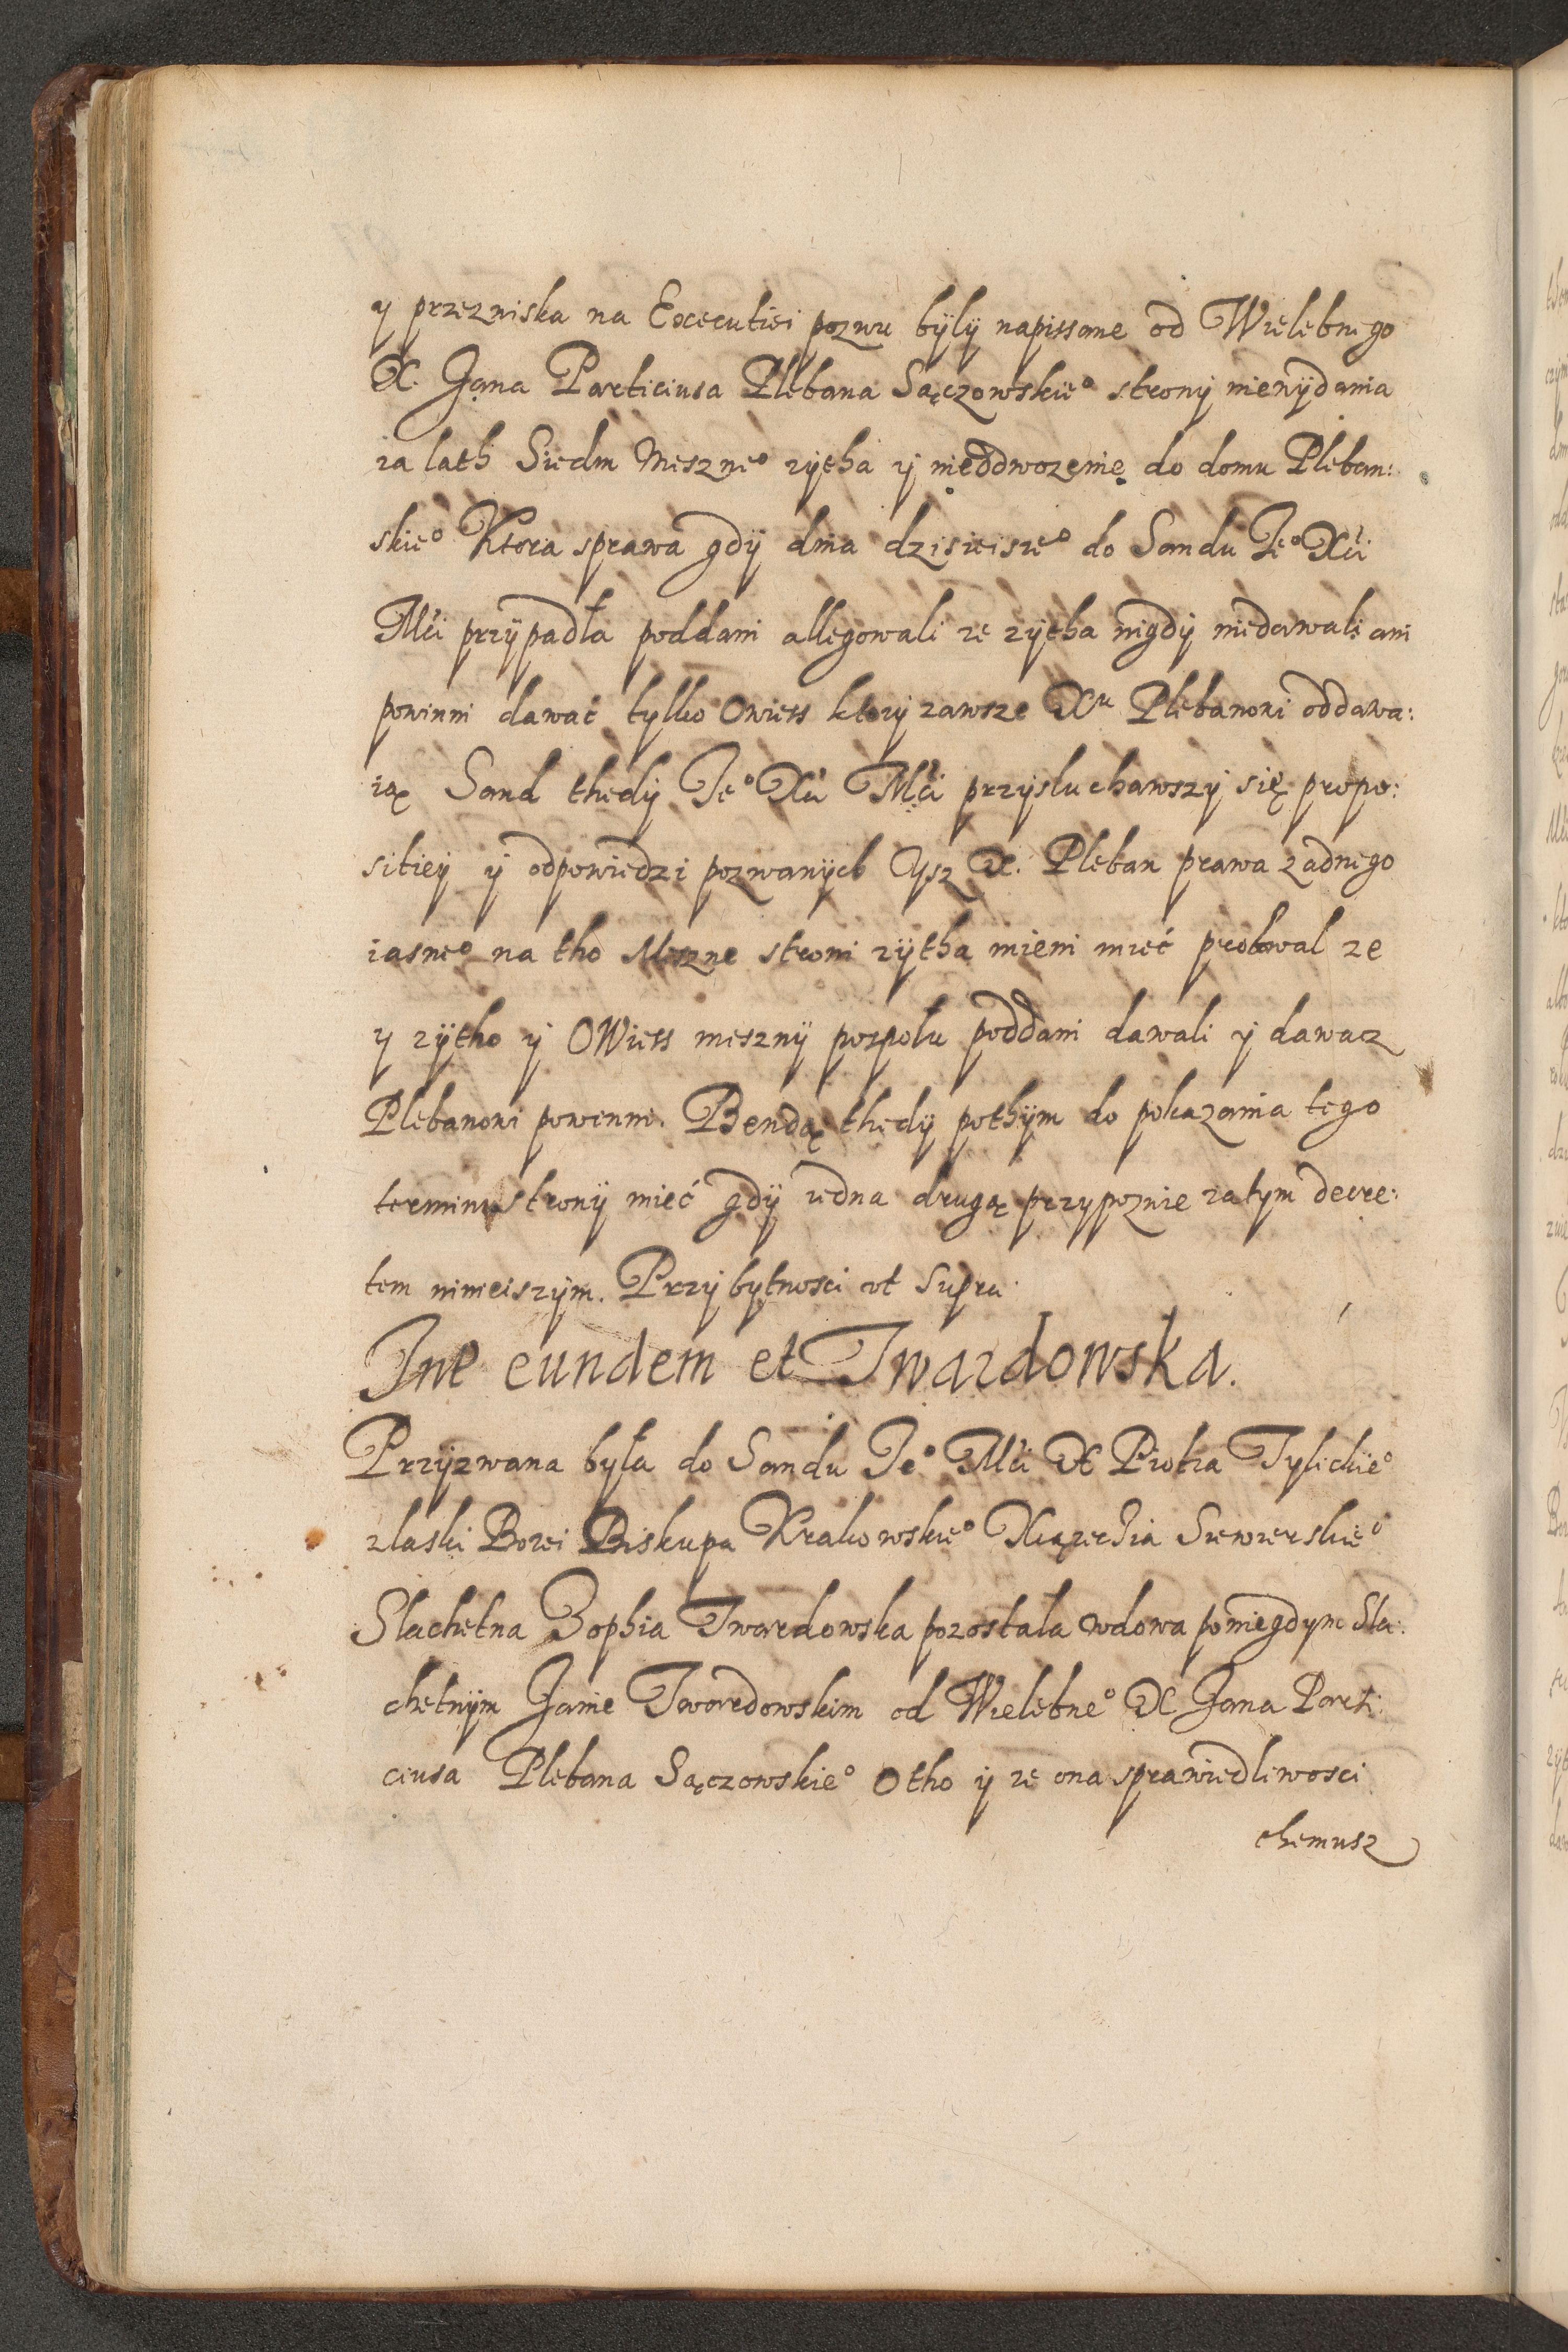 y przezniska na Excecutiei pozwu byly napissane od Wielebnego
X. Jana Particiusa Plebana Sączowskieº strony niewydania
za lath Siedm Meszneº zytha y nieodwozenie do domu Pleban:
skieº Ktora sprawa gdy dnia dzisieiszeº do Sandu Jeº Xći
Mći przypadła poddani allegowali ze zytha nigdy niedawali ani
powinni dawać tylko Owiess ktory zawsze Xu Plebanowi oddawa:
ią Sand thedy Jeº Xći Mći przysluchawszy się propo:
sitiey y odpowiedzi pozwanych Ysz X. Pleban prawa zadnego
iasneº na tho Meszne stroni zytha mieni mieć probowal ze
y zytho y OWiess meszny pospołu poddani dawali y dawacz
Plebanowi powinni. Bendą thedy pothym do pokazania tego
termini strony mieć gdy iedna drugą przypoznie zatym decre:
tem ninieiszym. Przy bytnosci vt Supra.
Int eundem et Twardowska.
Przyzwana była do Sandu Jeº Mći X Piotra Tylickieº
zlaski Bozei Biskupa Krakowskieº Xiązecia Siewierskieº
Slachetna Zophia Twardowska pozostala wdowa poniegdym Sla:
chetnym Janie Twardowskim od Wielebneº X Jana Parti:
ciusa Plebana Sączowskieº Otho y ze ona sprawiedliwosci
themusz